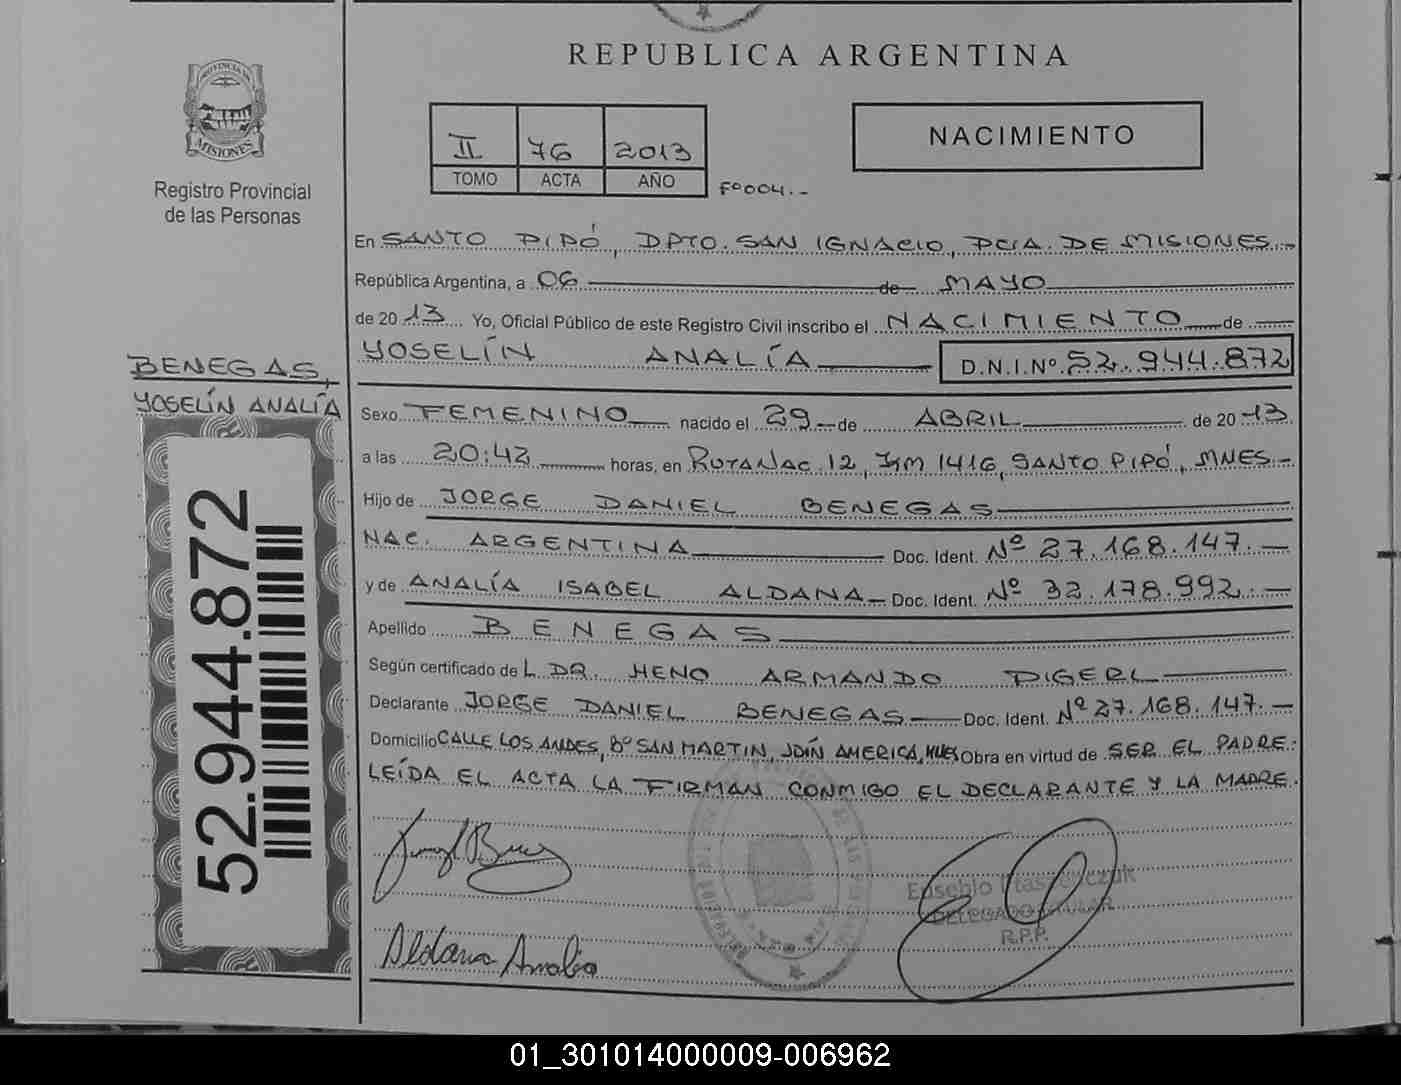 REPUBLICA ARGENTINA
PROVINCIA DE
MISIONES
Registro Provincial
de las Personas
II 76 2013
TOMO ACTA AÑO
Fº004.-
NACIMIENTO
En SANTO PIPÓ, DPTO. SAN IGNACIO, PCIA. DE MISIONES.-
República Argentina, a 06 de MAYO
de 2013 Yo, Oficial Público de este Registro Civil inscribo el NACIMIENTO de
YOSELÍN ANALÍA D.N.I.Nº 52.944.872
BENEGAS,
YOSELÍN ANALÍA
52.944.872
Sexo FEMENINO nacido el 29 de ABRIL de 2013
a las 20:42 horas, en RUTA NAC. 12, KM 1416, SANTO PIPÓ, MNES-
Hijo de JORGE DANIEL BENEGAS
NAC. ARGENTINA Doc. Ident. Nº 27.168.147.-
y de ANALÍA ISABEL ALDANA- Doc. Ident. Nº 32.178.992.-
Apellido BENEGAS
Según certificado de L DR. HENO ARMANDO DIGERL
Declarante JORGE DANIEL BENEGAS Doc. Ident. Nº 27.168.147.-
Domicilio CALLE LOS ANDES, Bº SAN MARTIN, JDÍN AMERICA, MNES Obra en virtud de SER EL PADRE.
LEÍDA EL ACTA LA FIRMAN CONMIGO EL DECLARANTE Y LA MADRE.
Eusebio
DELEGADO TITULAR
R.P.P.
Aldana Analia
01_301014000009-006962